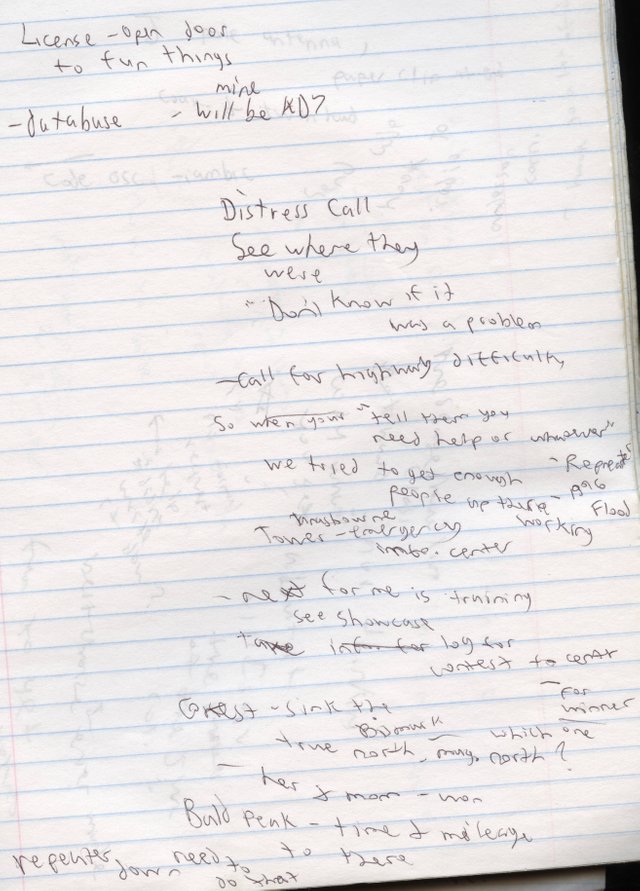 License - open door
to fun things
- database - mine will be KD7
Distress Call
See where they
were
"Don't know if it
was a problem
- Call for highway difficulty
So when your "tell them you
need help or whatever"
we tried to get enough - Repeater
people up there - 1996
working Flood
Tower - emergency
center
- next for me is training
see showcase
take info for log for
contest to center
- for
winner
Contest - sink the
Bismark
true north, mag. north? which one
- her & mom - won
Bald Peak - time & mileage
to there
repeater down need to
do that